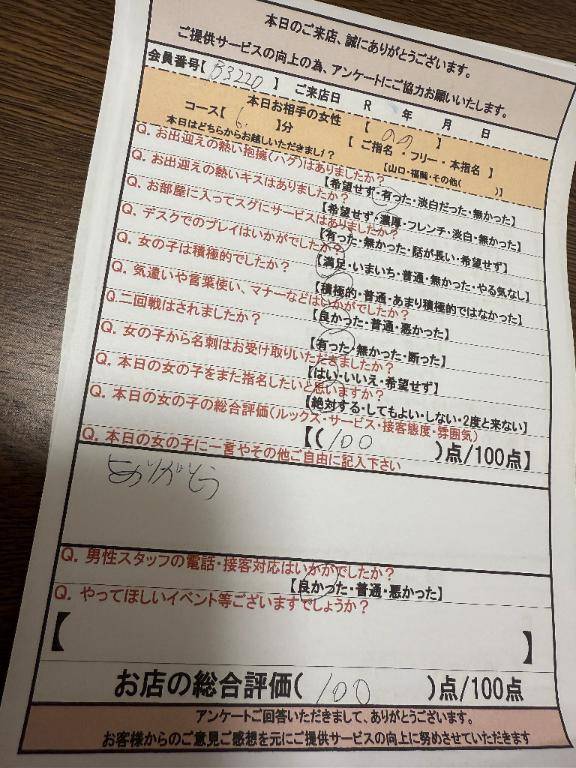 本日のご来店、誠にありがとうございます。
ご提供サービスの向上の為、アンケートにご協力お願いいたします。
会員番号【 B3220 】 ご来店日 R 年 月 日
本日お相手の女性 【 】
コース【 6. 】分 【 ご指名 ・ フリー ・ 本指名 】
本日はどちらからお越しいただきまし? 【山口・福岡・その他( )】
Q. お出迎えの熱い抱擁(ハグ)はありましたか?
【希望せず・有った・淡白だった・無かった】
Q. お出迎えの熱いキスはありましたか?
【希望せず・濃厚・フレンチ・淡白・無かった】
Q. お部屋に入ってスグにサービスはありましたか?
【有った・無かった・話が長い・希望せず】
Q. デスクでのプレイはいかがでしたか?
【満足・いまいち・普通・無かった・やる気なし】
Q. 女の子は積極的でしたか?
【積極的・普通・あまり積極的ではなかった】
Q. 気遣いや言葉使い、マナーなどはいかがでしたか?
【良かった・普通・悪かった】
Q. 二回戦はされましたか?
【有った・無かった・断った】
Q. 女の子から名刺はお受け取りいただきましたか?
【はい・いいえ・希望せず】
Q. 本日の女の子をまた指名したいと思いますか?
【絶対する・してもよい・しない・2度と来ない】
Q. 本日の女の子の総合評価(ルックス・サービス・接客態度・雰囲気)
【( 100 )点/100点】
Q. 本日の女の子に一言やその他ご自由に記入下さい
ありがとう
Q. 男性スタッフの電話・接客対応はいかがでしたか?
【良かった・普通・悪かった】
Q. やってほしいイベント等ございますでしょうか?
【 】
お店の総合評価( 100 )点/100点
アンケートご回答いただきまして、ありがとうございます。
お客様からのご意見ご感想を元にご提供サービスの向上に努めさせていただきます